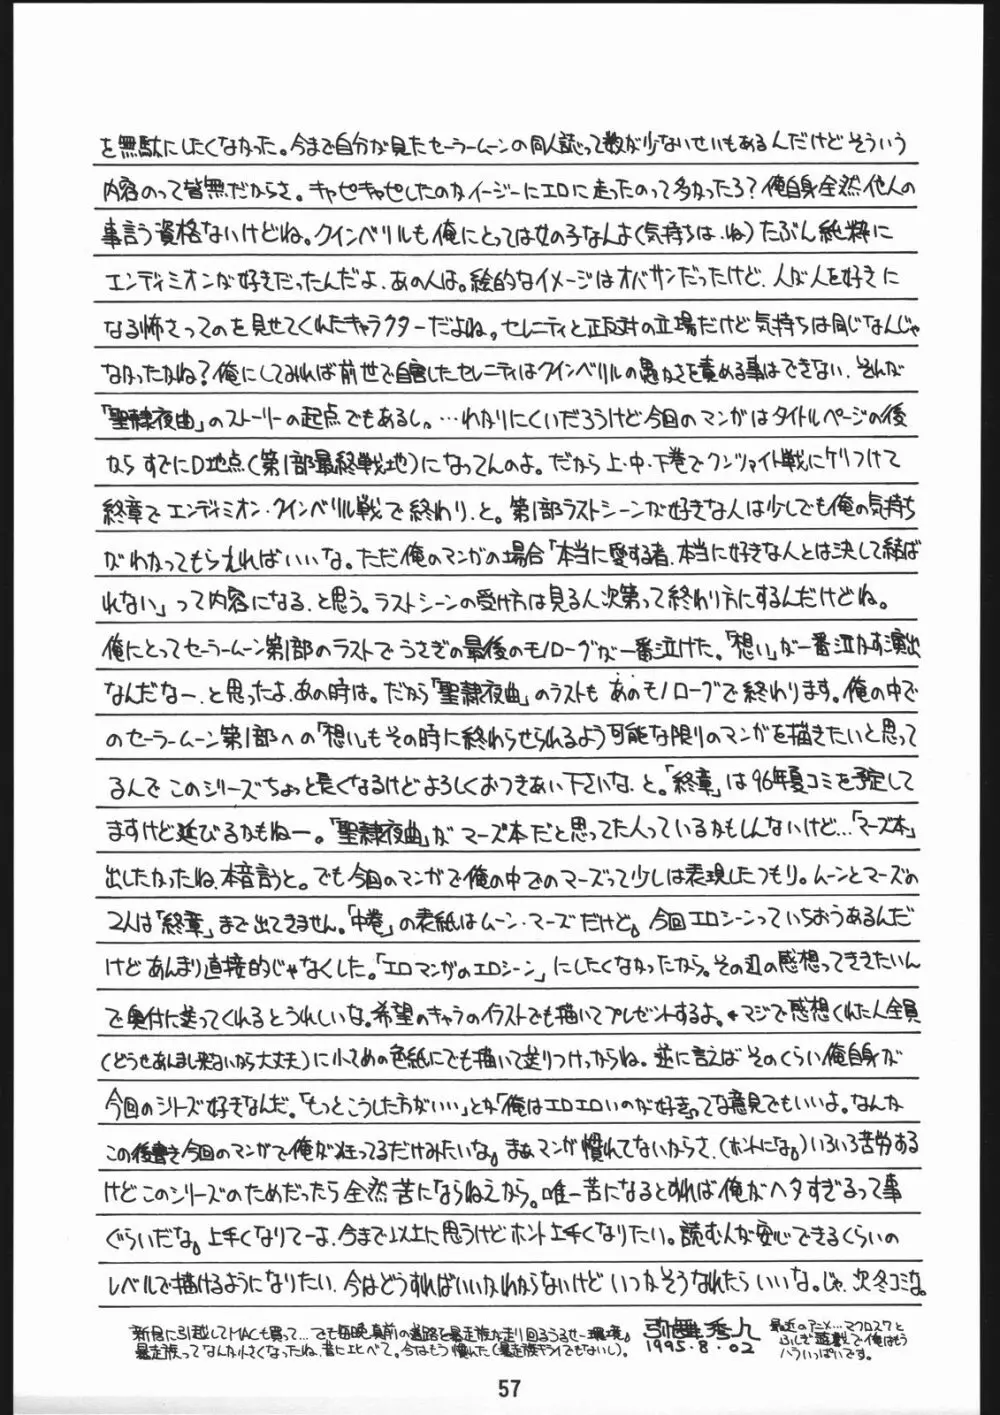 を無駄にしたくなかった。今まで自分が見たセーラームーンの同人誌って数が少ないせいもあるんだけどそういう
内容のって皆無だからさ。キャピキャピしたのがイージーにエロに走ったのって多かったろ?俺自身全然他人の
事言う資格ないけどね。クインベリルも俺にとっては女の子なんよ(気持ちは、ね)たぶん純粋に
エンディミオンが好きだったんだよ、あの人は。絵的なイメージはオバサンだったけど、人が人を好きに
なる怖さってのを見せてくれたキャラクターだよね。セレニティと正反対の立場だけど気持ちは同じなんじゃ
なかったかね?俺にしてみれば前世で自害したセレニティはクインベリルの愚かさを責める事はできない、それが
「聖隷夜曲」のストーリーの起点でもあるし。…わかりにくいだろうけど今回のマンガはタイトルページの後
ならすでにD地点(第1部最終戦地)になってんのよ。だから上・中・下巻でクンツァイト戦にケリつけて
終章でエンディミオン・クインベリル戦で終わり、と。第1部ラストシーンが好きな人は少しでも俺の気持ち
がわかってもらえればいいな。ただ俺のマンガの場合「本当に愛する者、本当に好きな人とは決して結ば
れない」って内容になる、と思う。ラストシーンの受け方は見る人次第って終わり方にするんだけどね。
俺にとってセーラームーン第1部のラストでうさぎの最後のモノローグが一番泣けた。「想い」が一番泣かす演出
なんだなー、と思ったよ、あの時は。だから「聖隷夜曲」のラストもあのモノローグで終わります。俺の中で
のセーラームーン第1部への「想い」もその時に終わらせられるよう可能な限りのマンガを描きたいと思って
るんでこのシリーズちょっと長くなるけどよろしくおつきあい下さいな、と。「終章」は96年夏コミを予定して
ますけど延びるかもねー。「聖隷夜曲」がマーズ本だと思ってた人っているかもしんないけど…「マーズ本」
出したかったね、本音言うと。でも今回のマンガで俺の中でのマーズって少しは表現したつもり。ムーンとマーズの
2人は「終章」まで出てきません。「中巻」の表紙はムーン・マーズだけど。今回エロシーンっていちおうあるんだ
けどあんまり直接的じゃなくした。「エロマンガのエロシーン」にしたくなかったから。その辺の感想ってききたいん
で奥付に送ってくれるとうれしいな。希望のキャラのイラストでも描いてプレゼントするよ。←マジで感想くれた人全員
(どうせあんまし来ないから大丈夫)に小さめの色紙にでも描いて送りつけっからね。逆に言えばそのくらい俺自身が
今回のシリーズ好きなんだ。「もっとこうした方がいい」とか「俺はエロエロいのが好き」ってな意見でもいいよ。なんか
この後書き今回のマンガで俺が狂ってるだけみたいな。まぁマンガ慣れてないからさ、(ホントにな。)いろいろ苦労する
けどこのシリーズのためだったら全然苦にならねえから。唯一苦になるとすれば俺がヘタすぎるって事
ぐらいだな。上手くなりてーよ、今まで以上に思うけどホント上手くなりたい。読む人が安心できるくらいの
レベルで描けるようになりたい、今はどうすればいいかわからないけどいつかそうなれたらいいな。じゃ、次冬コミな。
新居に引越してMACも買って…でも毎晩真前の道路を暴走族が走り回るうるせー環境。
暴走族ってなんか小さくなったね、昔に比べて。今はもう慣れた(暴走族キライでもないし)。
1995・8・02
最近のアニメ…マクロス7と
ふしぎ遊戯で俺はもう
ハラいっぱいです。
57